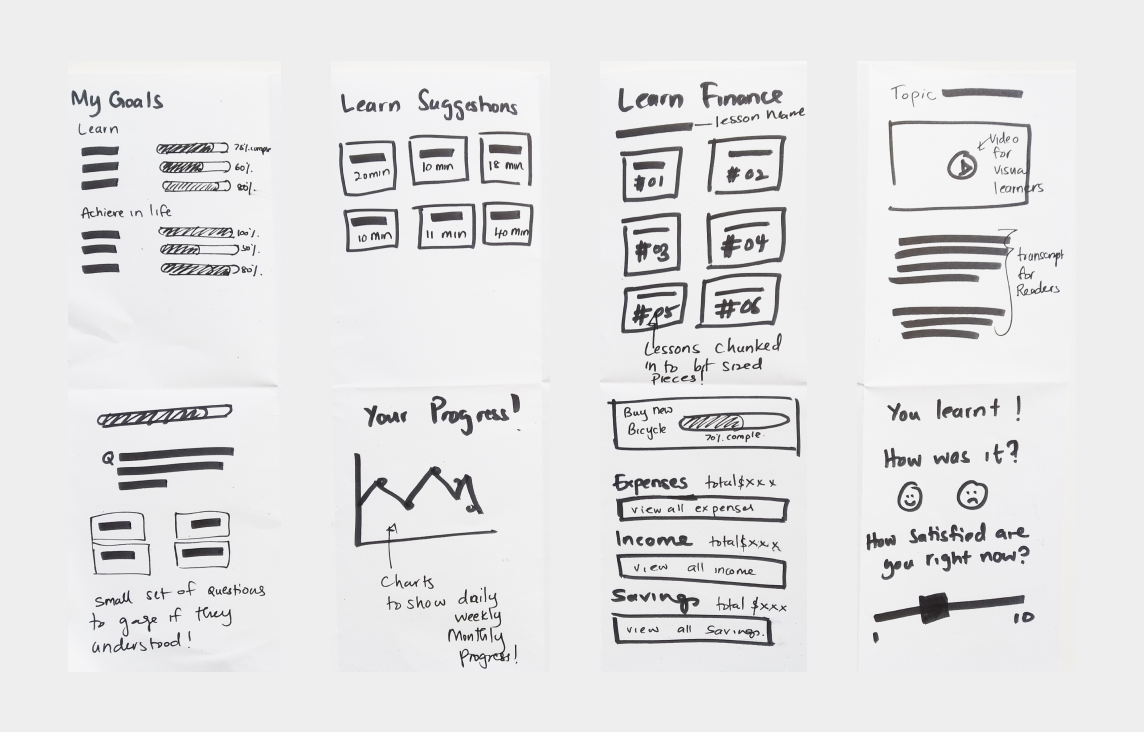 My Goals
Learn
75% comple
60%.
80%.
Achieve in life
100%.
50%.
80%.
Learn Suggestions
20min
10 min
18 min
10 min
11 min
40 min
Learn Finance
lesson name
#01
#02
#03
#04
#05
#06
Lessons chunked
in to bit sized
pieces!
Topic
Video
for
visual
learners
transcript
for
Readers
Q
Small set of questions
to gage if they
understood!
Your Progress!
Charts
to show daily
weekly
Monthly
Progress!
Buy new
Bicycle
70%. comple.
Expenses total $xxx
view all expenses
Income total $xxx
view all income
Savings total $xxx
view all savings.
You learnt !
How was it?
How satisfied are
you right now?
1
10